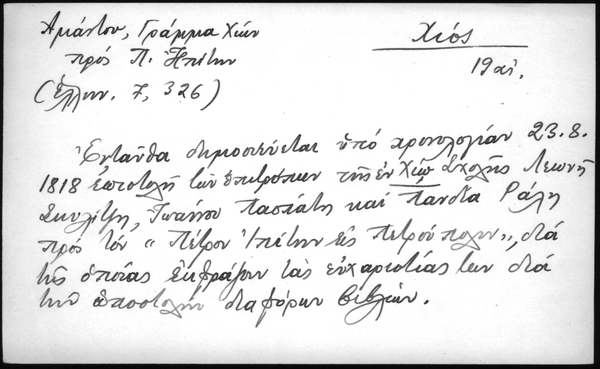 Ἀμάντου, Γράμμα Χίων
πρός Π. Ἠπίτην
(Ἑλλην. 7, 326)
Χίος
19 αἰ.
Ἐνταῦθα δημοσιεύεται ὑπό χρονολογίαν 23.8.
1818 ἐπιστολή τῶν ἐπιτρόπων τῆς ἐν Χίῳ Σχολῆς Λεωνῆ
Σκυλίτζη, Ἰωάννου Πασπάτη καί Παντιᾶ Ράλη
πρός τόν "Πέτρον Ἠπίτην εἰς Πετρούπολιν", διά
τῆς ὁποίας ἐκφράζουν τάς εὐχαριστίας των διά
τήν ἀποστολήν διαφόρων βιβλίων.